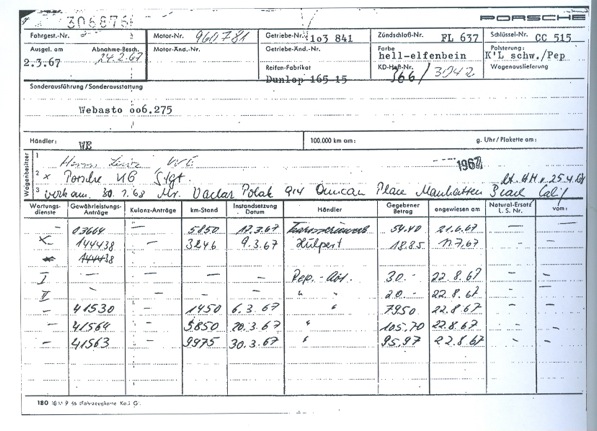 306876 PORSCHE
Fahrgest.-Nr. Motor-Nr. 960781 Getriebe-Nr. 103 841 Zündschloß-Nr. FL 637 Schlüssel-Nr. CC 515
Ausgel. am Abnahme-Besch. Motor-Änd.-Nr. Getriebe-Änd.-Nr. Farbe Polsterung:
2.3.67 24.2.67 hell-elfenbein K'L schw./Pep
Reifen-Fabrikat Wagenauslieferung
Dunlop 165 15 3042
Sonderausführung / Sonderausstattung
Webasto 006.275
Händler: WE 100.000 km am: g. Uhr / Plakette am:
Wagenbesitzer
1 Herrn WE 1967
2 x Porsche KG Stgt.
3 verk. am 30.7.68 Mr. Vaclav Polak 914 Duncan Place Manhattan Beach Calif
Wartungs-dienste Gewährleistungs-Anträge Kulanz-Anträge km-Stand Instandsetzung Datum Händler Gegebener Betrag angewiesen am Natural-Ersatz L. S. Nr. vom:
— 03664 — 5850 17.3.67 54.40 21.6.67 — —
x 144438 — 3246 9.3.67 Hülpert 18.85 11.7.67 — —
144438
I — — — Rep.-Abt. 30.- 22.8.67 — —
II — — — " " 20.- 22.8.67 — —
— 41530 — 1450 6.3.67 " 79.50 22.8.67 — —
— 41564 — 5850 20.3.67 " 105.70 22.8.67 — —
— 41563 — 9975 30.3.67 " 95.97 22.8.67 — —
180